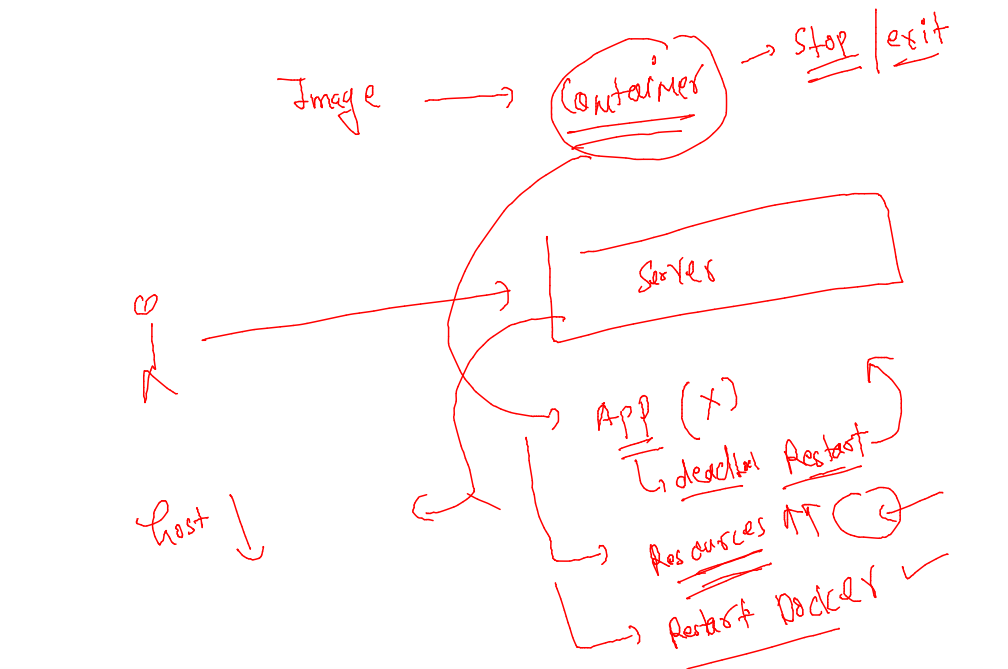 Image → Container → Stop | exit
Server
App (X)
↳ deadlock Restart
Host ↓
Resources ↑↑
Restart Docker ✓